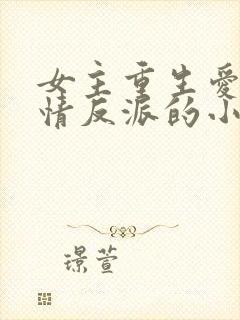 女主重生爱
情反派的小
璟萱